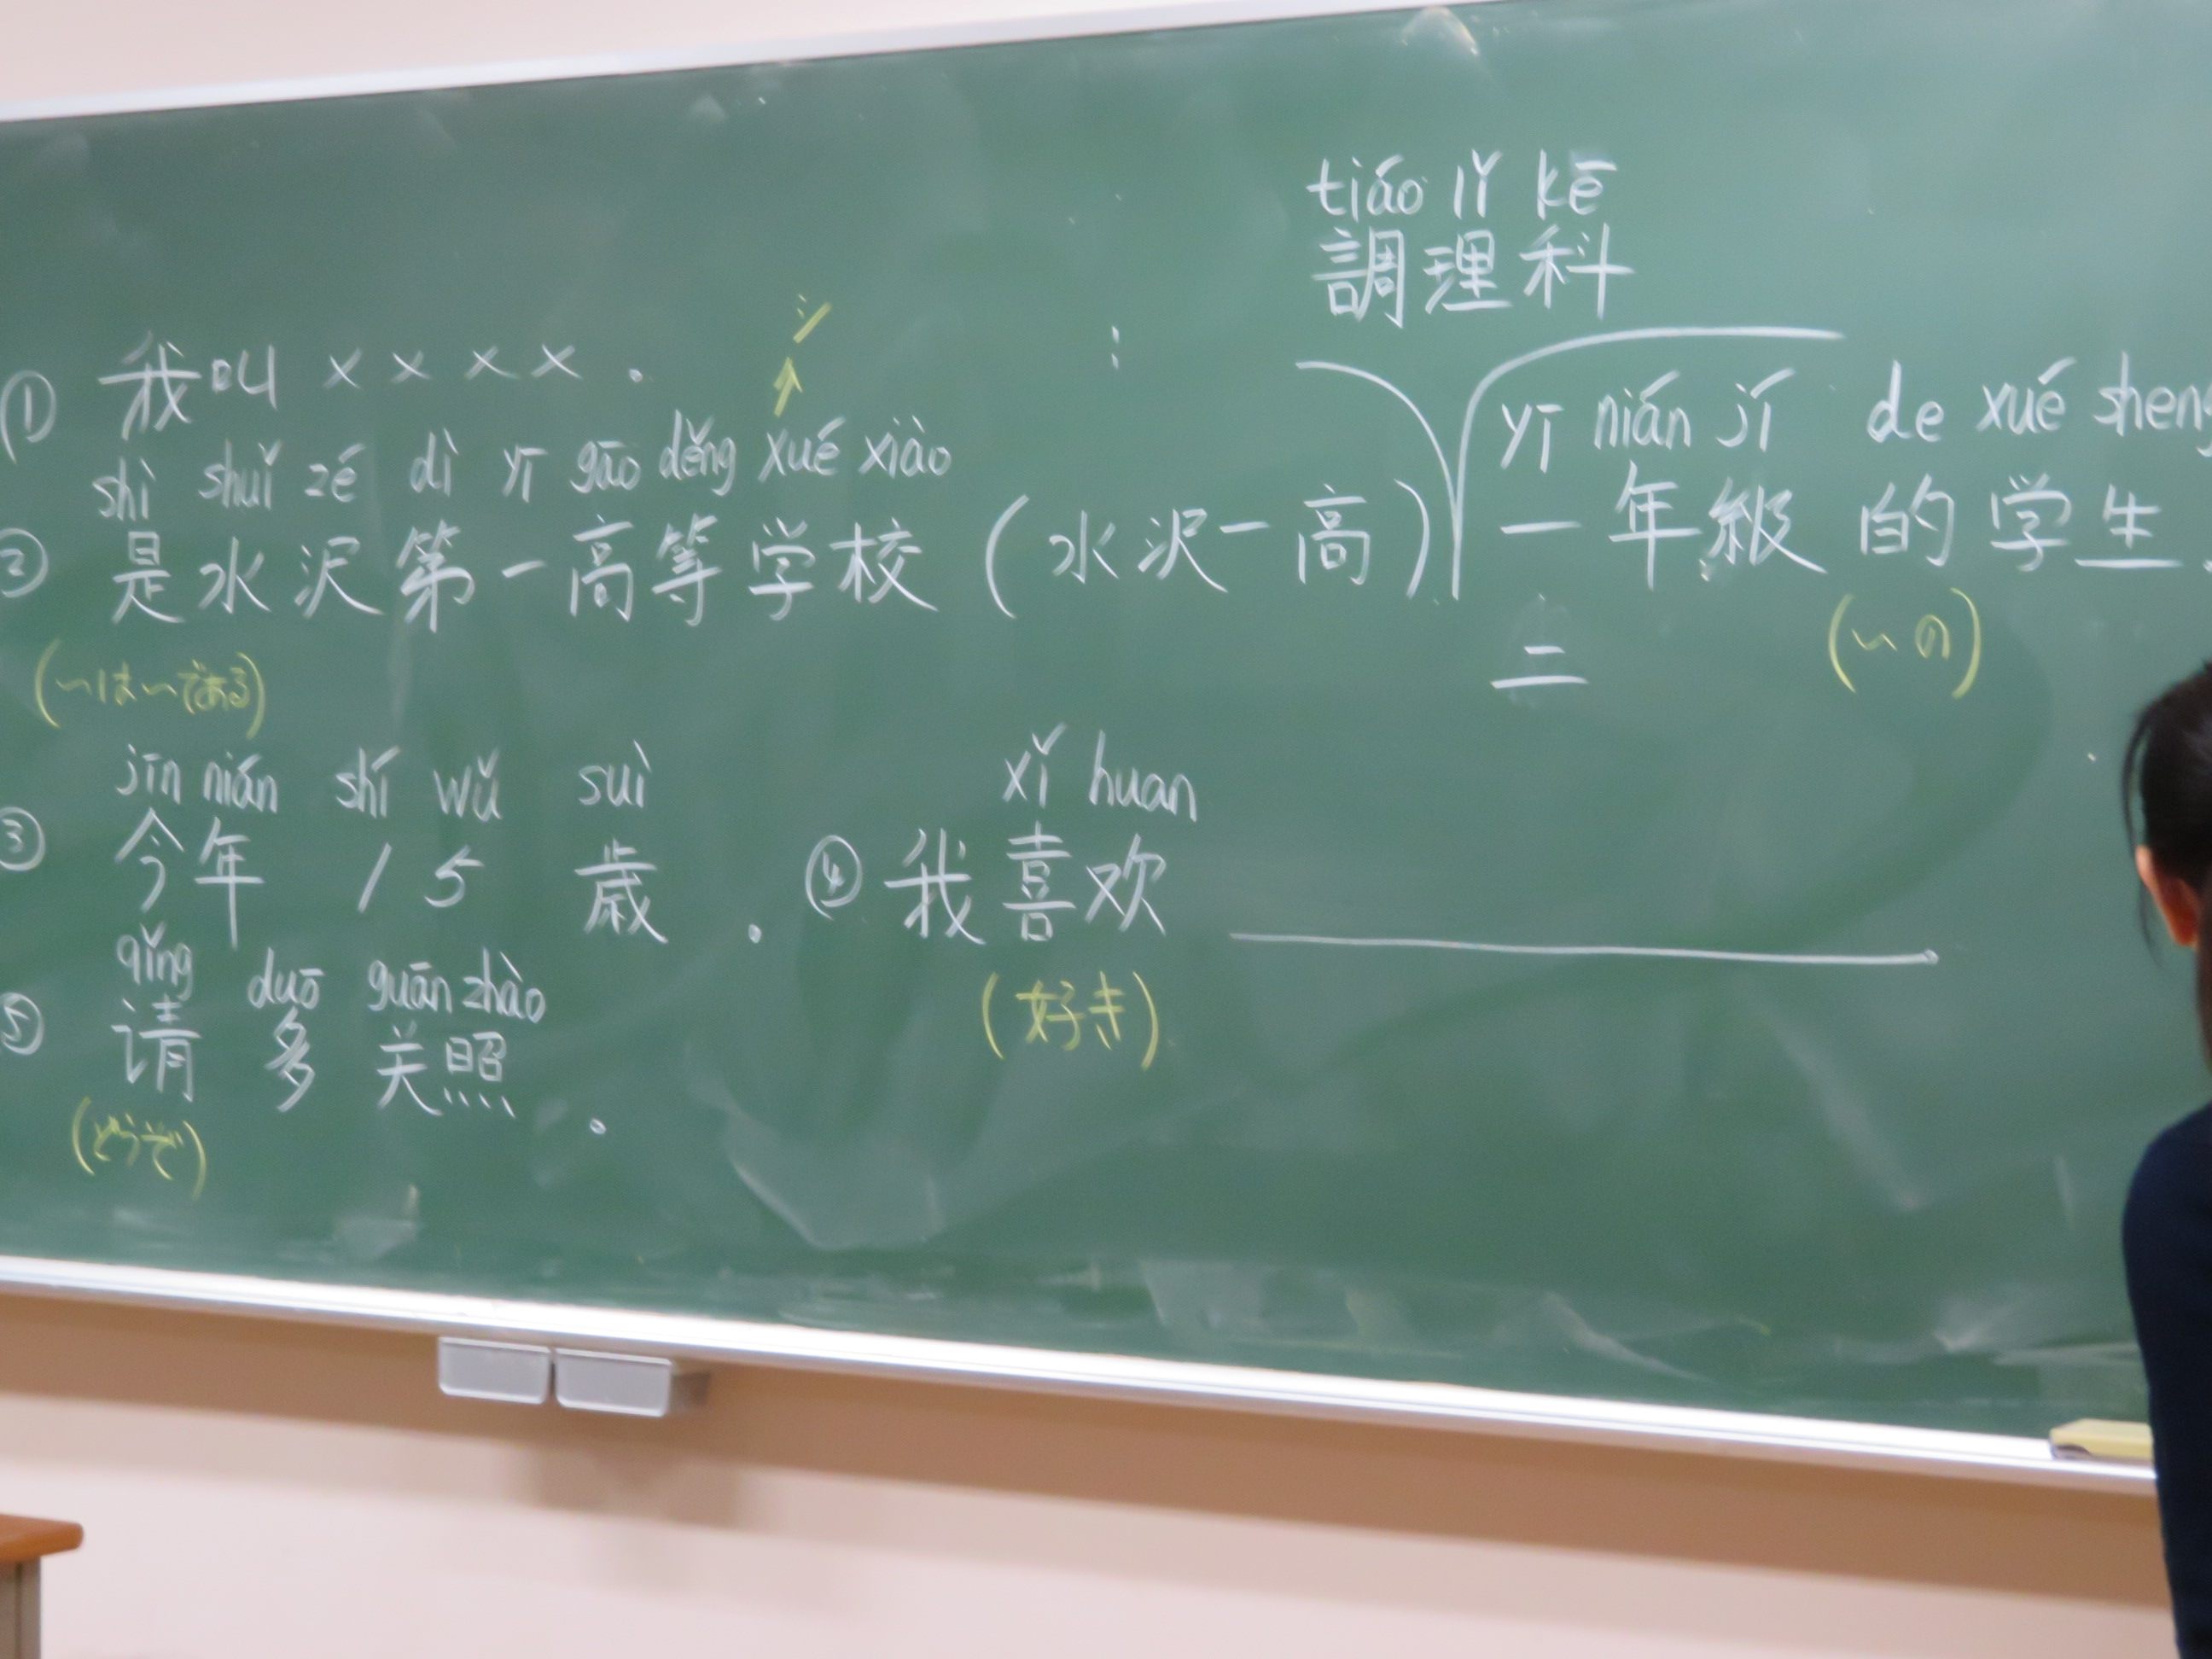 tiáo lǐ kē
調理科
シ
① 我叫 × × × × .
shì shuǐ zé dì yī gāo děng xué xiào
yī nián jí de xué sheng
② 是水沢第一高等学校(水沢一高) 一年級的学生.
二
(〜は〜である)
(〜の)
jīn nián shí wǔ suì
xǐ huan
③ 今年 15 歳 。 ④ 我喜欢
(好き)
qǐng duō guān zhào
⑤ 请多关照 。
(どうぞ)